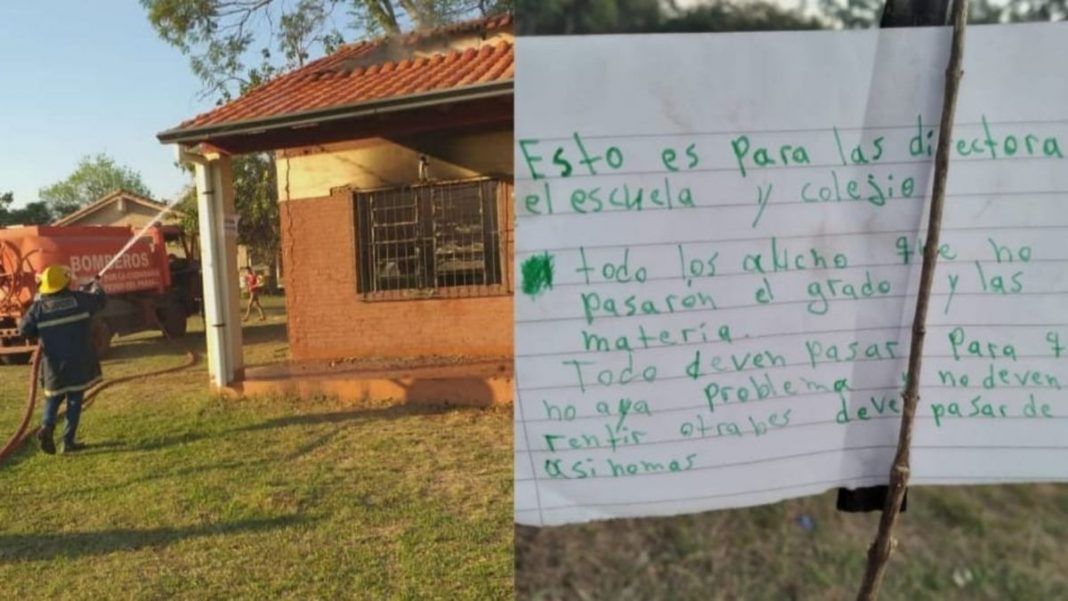 BOMBEROS
POR LA CIUDADANIA
Esto es para las directora
el escuela y colejio
todo los alucho que no
pasarón el grado y las
materia.
Todo deven pasar Para q
no aya problema y no deven
rentir otrabes deve pasar de
asinomas